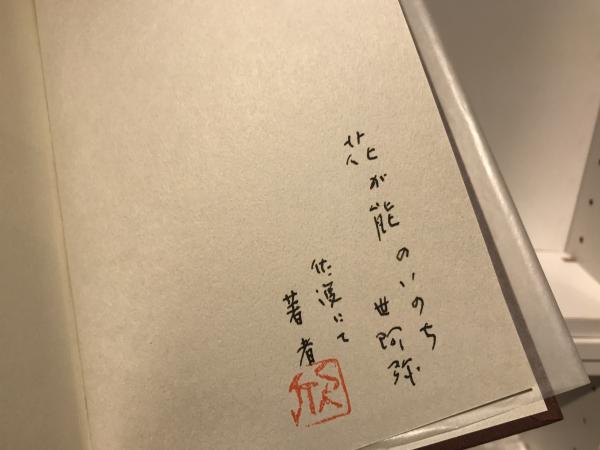 花が能のいのち
世阿弥
佐渡にて
著者